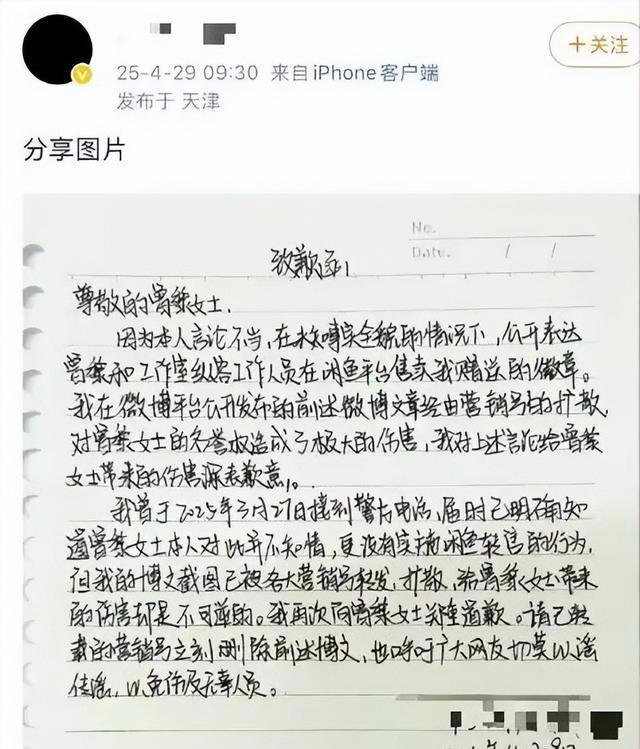 +关注
25-4-29 09:30 来自 iPhone客户端
发布于 天津
分享图片
No.
Date. / /
致歉函
尊敬的曾黎女士,
因为本人言论不当,在未窥全貌的情况下,公开表达
曾黎和工作室纵容工作人员在闲鱼平台售卖我赠送的徽章。
我在微博平台公开发布的前述微博文章经由营销号的扩散,
对曾黎女士的名誉权造成了极大的伤害,我对上述言论给曾黎
女士带来的伤害深表歉意。
我曾于2025年3月27日接到警方电话,届时已明确知
道曾黎女士本人对此并不知情,更没有实施闲鱼转售的行为,
但我的博文截图已被各大营销号转发,扩散,给曾黎女士带来
的伤害却是不可逆的。我再次向曾黎女士郑重道歉。请已转
载的营销号立刻删除前述博文,也呼吁广大网友切莫以谣
传谣,以免伤及无辜人员。